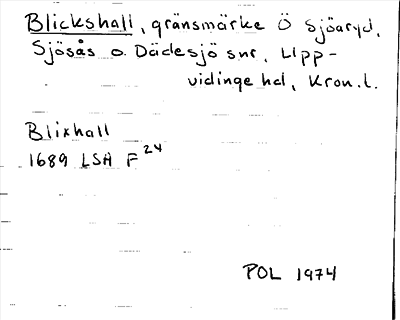 Blickshall, gränsmärke Ö Sjöaryd,
Sjösås o. Dädesjö snr, Upp-
vidinge hd, Kron. l.
Blixhall
1689 LSA F 24
POL 1974